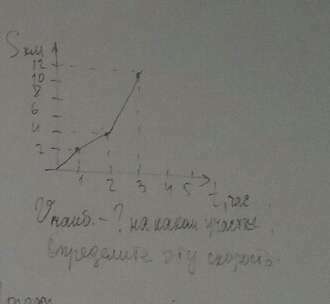 S км
12
10
8
6
4
2
1 2 3 4 5 t, час
Vнаиб. - ? на каком участке,
определите эту скорость.